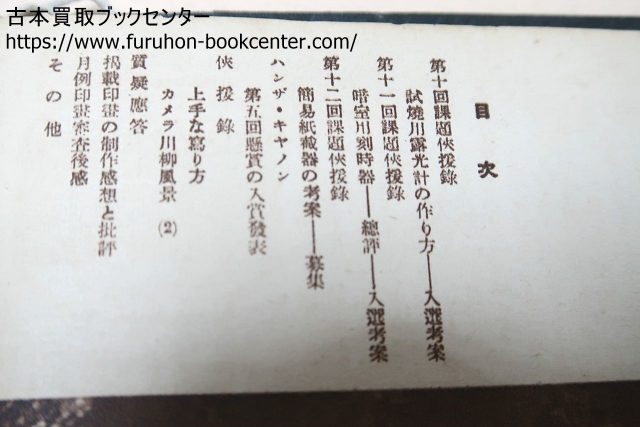 古本買取ブックセンター
https://www.furuhon-bookcenter.com/
目次
第十回課題俠援錄
試燒用露光計の作り方――入選考案
第十一回課題俠援錄
暗室用刻時器――總評――入選考案
第十二回課題俠援錄
簡易紙截器の考案――募集
ハンザ・キヤノン
第五回懸賞の入賞發表
俠援錄
上手な寫り方
カメラ川柳風景(2)
質疑應答
揭載印畫の制作感想と批評
月例印畫審査後感
その他